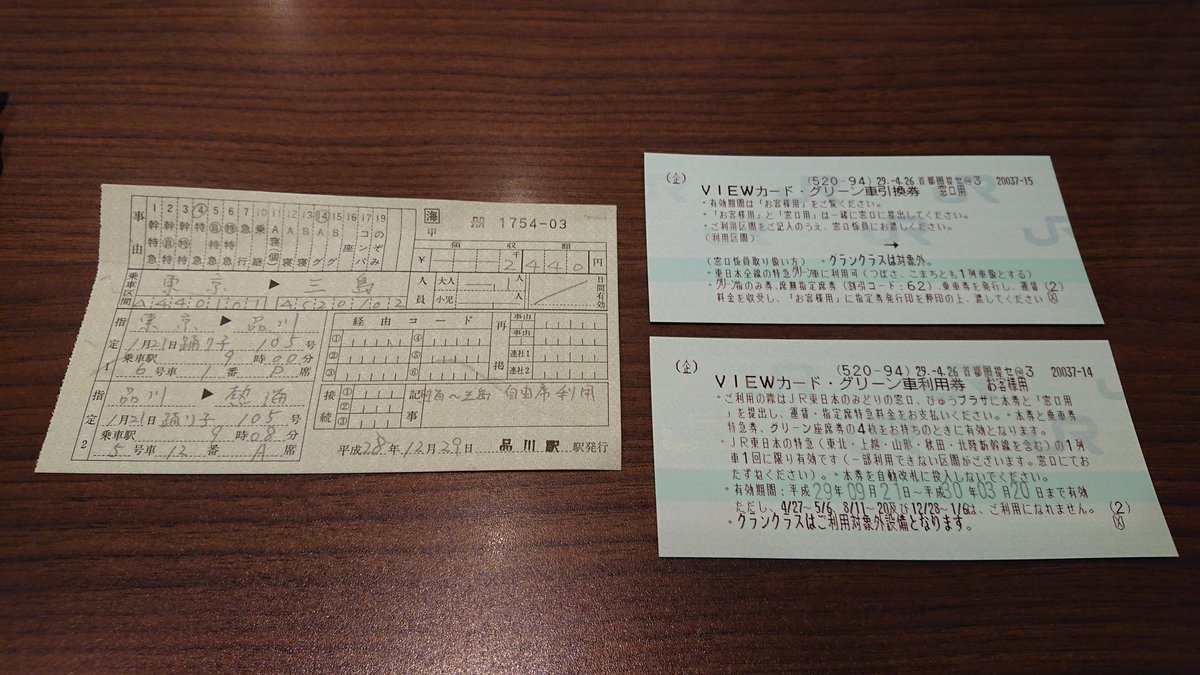 事由
1 2 3 4 5 6 7 10 11 12 13 14 15 16 17 19
幹特急
幹特
特急
急行
乗継
A寝(個)
A寝
B寝
Aグ
Bグ
座席
コンパ
のぞみ
海
甲 冊 1754-03
領収額
¥ 2千440円
乗車区間
東京 ▶ 三島
A440101 A520102
人員
大人 1人
小児 人
日間有効
指定1
東京 ▶ 品川
1月21日 踊り子 105号
乗車駅 9時00分
6号車 1番 D席
指定2
品川 ▶ 熱海
1月21日 踊り子 105号
乗車駅 9時08分
5号車 12番 A席
経由コード
① ④
② ⑤
③ ⑥
再掲
事由
事由
連社1
連社2
接続
① ② ③
記事
自由席利用
平成28年12月29日 品川駅 駅発行
(企) (520-94) 29.-4.26 3 20037-15
VIEWカード・グリーン車引換券 窓口用
・有効期間は「お客様用」をご覧ください。
・「お客様用」と「窓口用」は一緒に窓口に提出してください。
・ご利用区間をご記入のうえ、窓口係員にお渡しください。
(利用区間)
→
(窓口係員取り扱い方) ・グランクラスは対象外。
・東日本全線の特急グリーン車に利用可(つばさ、こまちとも1列車扱とする)
・グリーン指のみ券、席無指定席券(割引コード:62)、乗車券を発行し、運賃 (2)
料金を収受し、「お客様用」に指定券発行印を押印の上、渡してください
(企) (520-94) 29.-4.26 3 20037-14
VIEWカード・グリーン車利用券 お客様用
・ご利用の際はJR東日本のみどりの窓口、びゅうプラザに本券と「窓口用
」を提出し、運賃・指定席特急料金をお支払いください。・本券と乗車券
特急券、グリーン座席券の4枚をお持ちのときに有効となります。
・JR東日本の特急(東北・上越・山形・秋田・北陸新幹線を含む)の1列
車1回に限り有効です(一部利用できない区間がございます。窓口にてお
たずねください)。・本券を自動改札に投入しないでください。
・有効期間:平成29年09月21日~平成30年03月20日まで有効
ただし、4/27~5/6、8/11~20及び12/28~1/6は、ご利用になれません。 (2)
・グランクラスはご利用対象外設備となります。